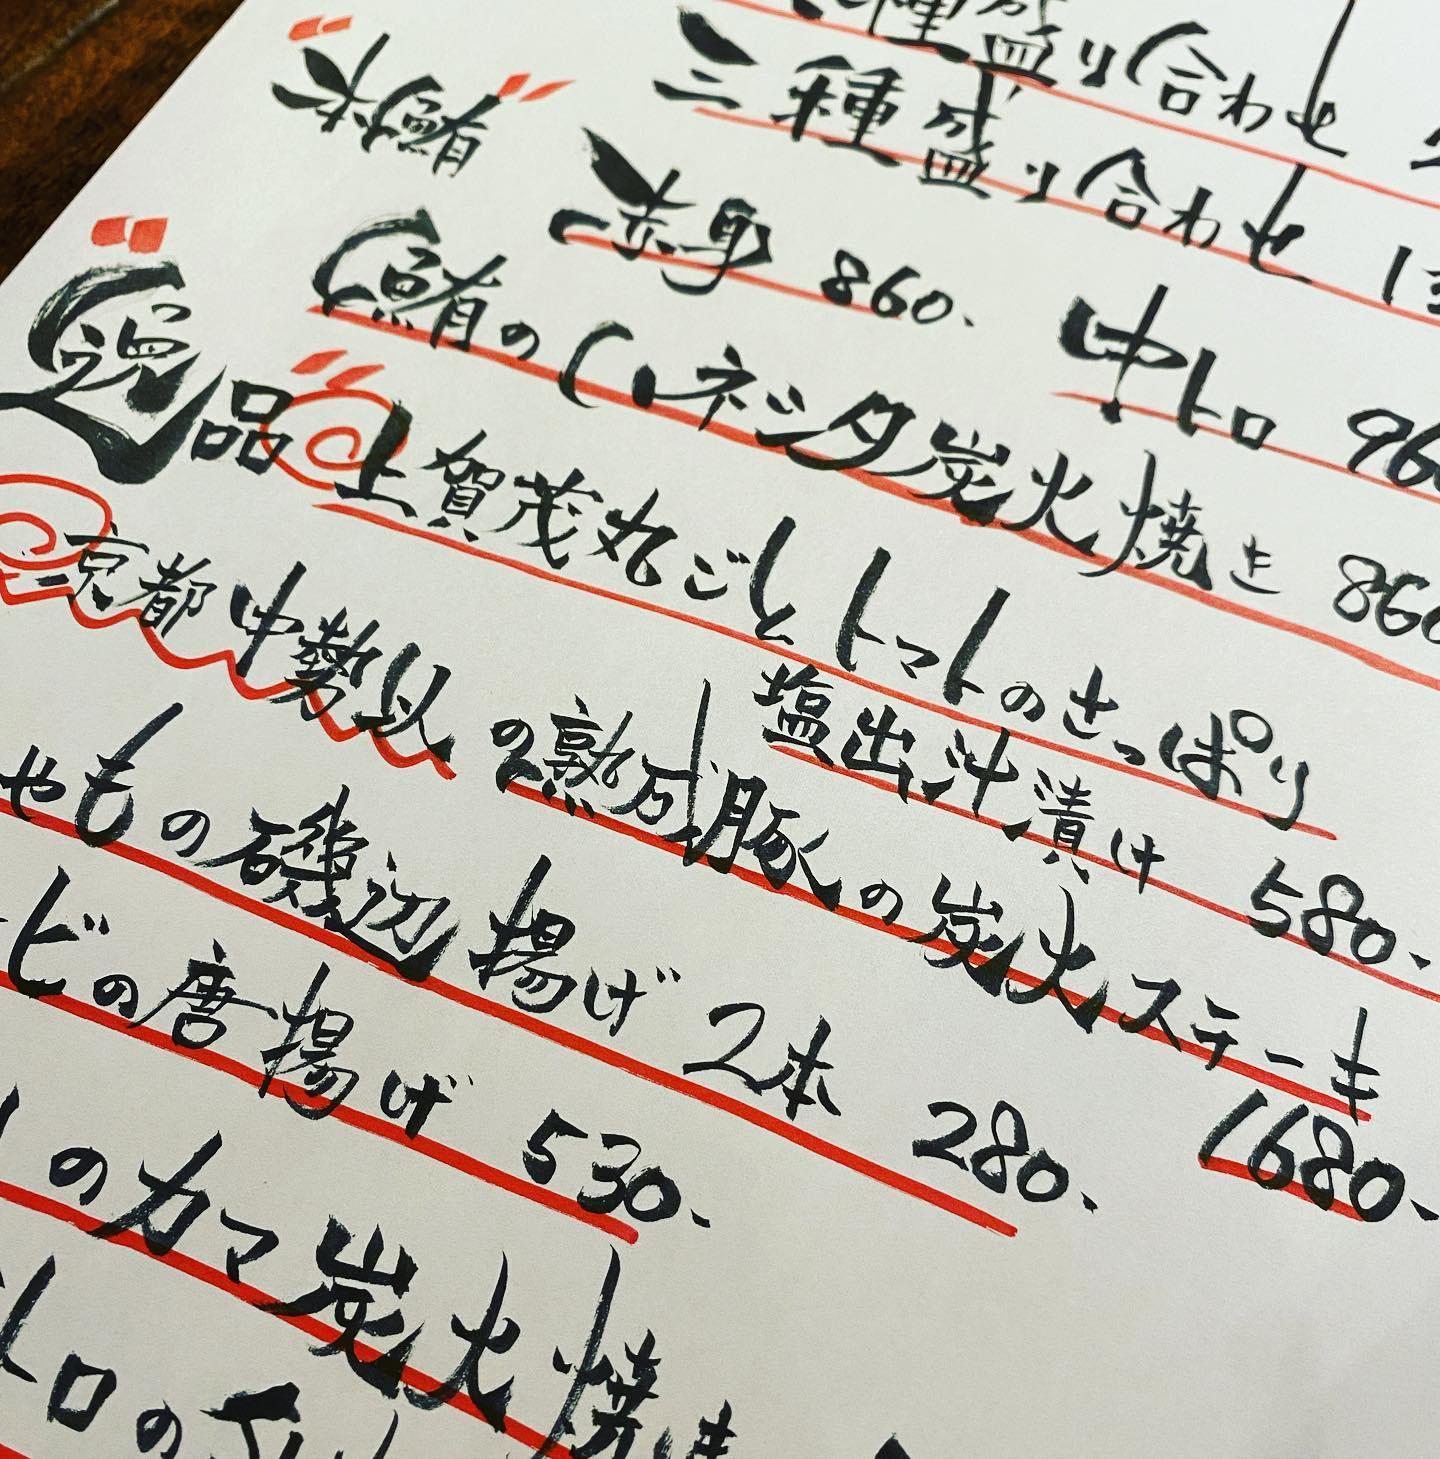 種盛り合わせ
三種盛り合わせ 1
本鮪
赤身 860. 中トロ 960
鮪のハネシタ炭火焼き 860
逸品
上賀茂丸ごとトマトのさっぱり
塩出汁漬け 580.
京都中勢以の熟成豚の炭火ステーキ
1680.
やもの磯辺揚げ 2本 280.
ビの唐揚げ 530.
のカマ炭火焼き
トロの